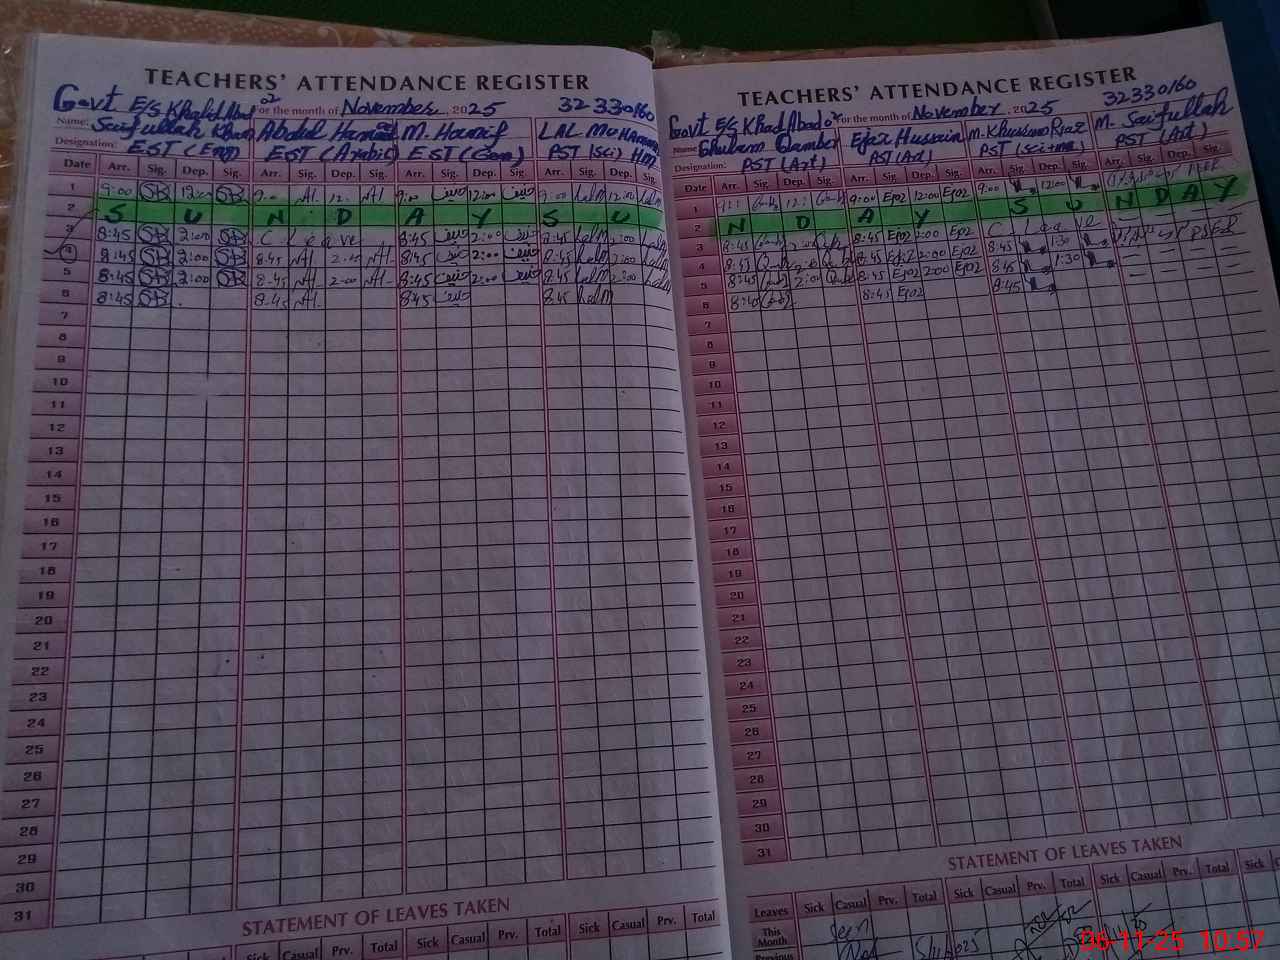 TEACHERS' ATTENDANCE REGISTER
Govt E/S Khalid Abad 02 For the month of November 2025 32330160
Name: Saifullah Khan Abdul Hameed M. Hanif LAL MUHAMMAD
Designation: EST (Eng) EST (Arabic) EST (Gen) PST (Sci) HM
Date Arr. Sig. Dep. Sig. Arr. Sig. Dep. Sig. Arr. Sig. Dep. Sig. Arr. Sig. Dep. Sig.
1 9:00 SK 12:00 SK 9:00 AH. 12: AH 9:00 حنیف 12:00 حنیف 9:00 LalM 12:00 LalM
2 S U N D A Y S U
3 8:45 SK 2:00 SK C Leave 8:45 حنیف 2:00 حنیف 8:45 LalM 2:00 LalM
4 8:45 SK 2:00 SK 8:45 AH 2:00 AH 8:45 حنیف 2:00 حنیف 8:45 LalM 2:00 LalM
5 8:45 SK 2:00 SK 8:45 AH 2:00 AH 8:45 حنیف 2:00 حنیف 8:45 LalM 2:00 LalM
6 8:45 SK 8:45 AH 8:45 حنیف 8:45 LalM
7
8
9
10
11
12
13
14
15
16
17
18
19
20
21
22
23
24
25
26
27
28
29
30
31
STATEMENT OF LEAVES TAKEN
Casual Prv. Total Sick Casual Prv. Total Sick Casual Prv. Total
TEACHERS' ATTENDANCE REGISTER
Govt E/S Khalid Abad 02 For the month of November 2025 32330160
Name: Ghulam Qamber Ejaz Hussain M. Khurram Riaz M. Saifullah
Designation: PST (Art) PST (Art) PST (Sci+ma) PST (Art)
Date Arr. Sig. Dep. Sig. Arr. Sig. Dep. Sig. Arr. Sig. Dep. Sig. Arr. Sig. Dep. Sig.
1 9:00 12:00 9:00 12:00
2 N D A Y S U N D A Y
3 8:45 2:00 8:45 2:00 C Leave
4 8:45 2:00 8:45 2:00 8:45 1:30
5 8:45 2:00 8:45 2:00 8:45 1:30
6 8:40 8:45 8:45
7
8
9
10
11
12
13
14
15
16
17
18
19
20
21
22
23
24
25
26
27
28
29
30
31
STATEMENT OF LEAVES TAKEN
Leaves Sick Casual Prv. Total Sick Casual Prv. Total Sick Casual Prv. Total Sick
This Month Seen
Previous 5/11/025
06-11-25 10:57